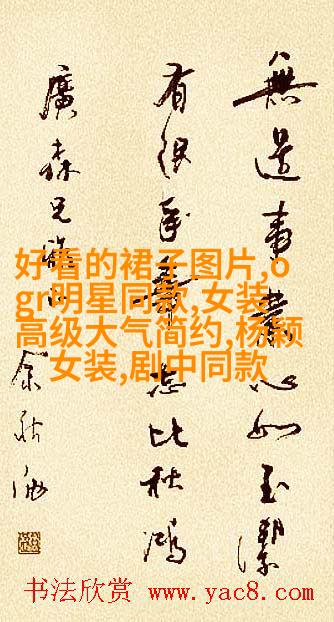 無事心如玉潔
有志比秋鴻
廣森兄
余秋
好看的裙子图片,o
gr明星同款,女装
高级大气简约,杨颖
女装,剧中同款
书法欣赏 www.yac8.com